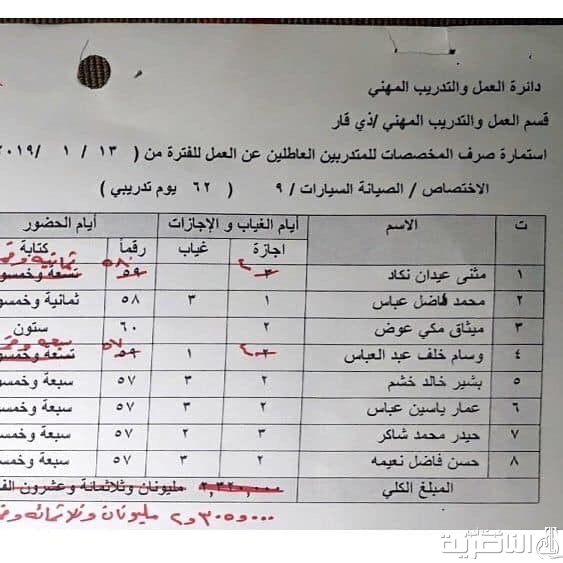 دائرة العمل والتدريب المهني
قسم العمل والتدريب المهني /ذي قار
استمارة صرف المخصصات للمتدربين العاطلين عن العمل للفترة من ( ١٣ / ١ /٢٠١٩
الاختصاص / الصيانة السيارات / ٩ ( ٦٢ يوم تدريبي )
ت الاسم أيام الغياب و الإجازات أيام الحضور
اجازة غياب رقماً كتابة
١ مثنى عيدان نكاد ٥٩ ٥٨ تسعة وخمسو ثمانية
٢ محمد فاضل عباس ١ ٣ ٥٨ ثمانية وخمسو
٣ ميثاق مكي عوض ٢ ٦٠ ستون
٤ وسام خلف عبد العباس ١ ٥٩ ٥٧ تسعة وخمسو سبعة
٥ بشير خالد خشم ٢ ٣ ٥٧ سبعة وخمسو
٦ عمار ياسين عباس ٢ ٣ ٥٧ سبعة وخمسو
٧ حيدر محمد شاكر ٣ ٢ ٥٧ سبعة وخمسو
٨ حسن فاضل نعيمه ٢ ٣ ٥٧ سبعة وخمسو
المبلغ الكلي ٢,٣٢٠,٠٠٠ مليونان وثلاثمائة وعشرون الف
٢,٣٠٥,٠٠٠ مليونان وثلاثمائه
الناصرية